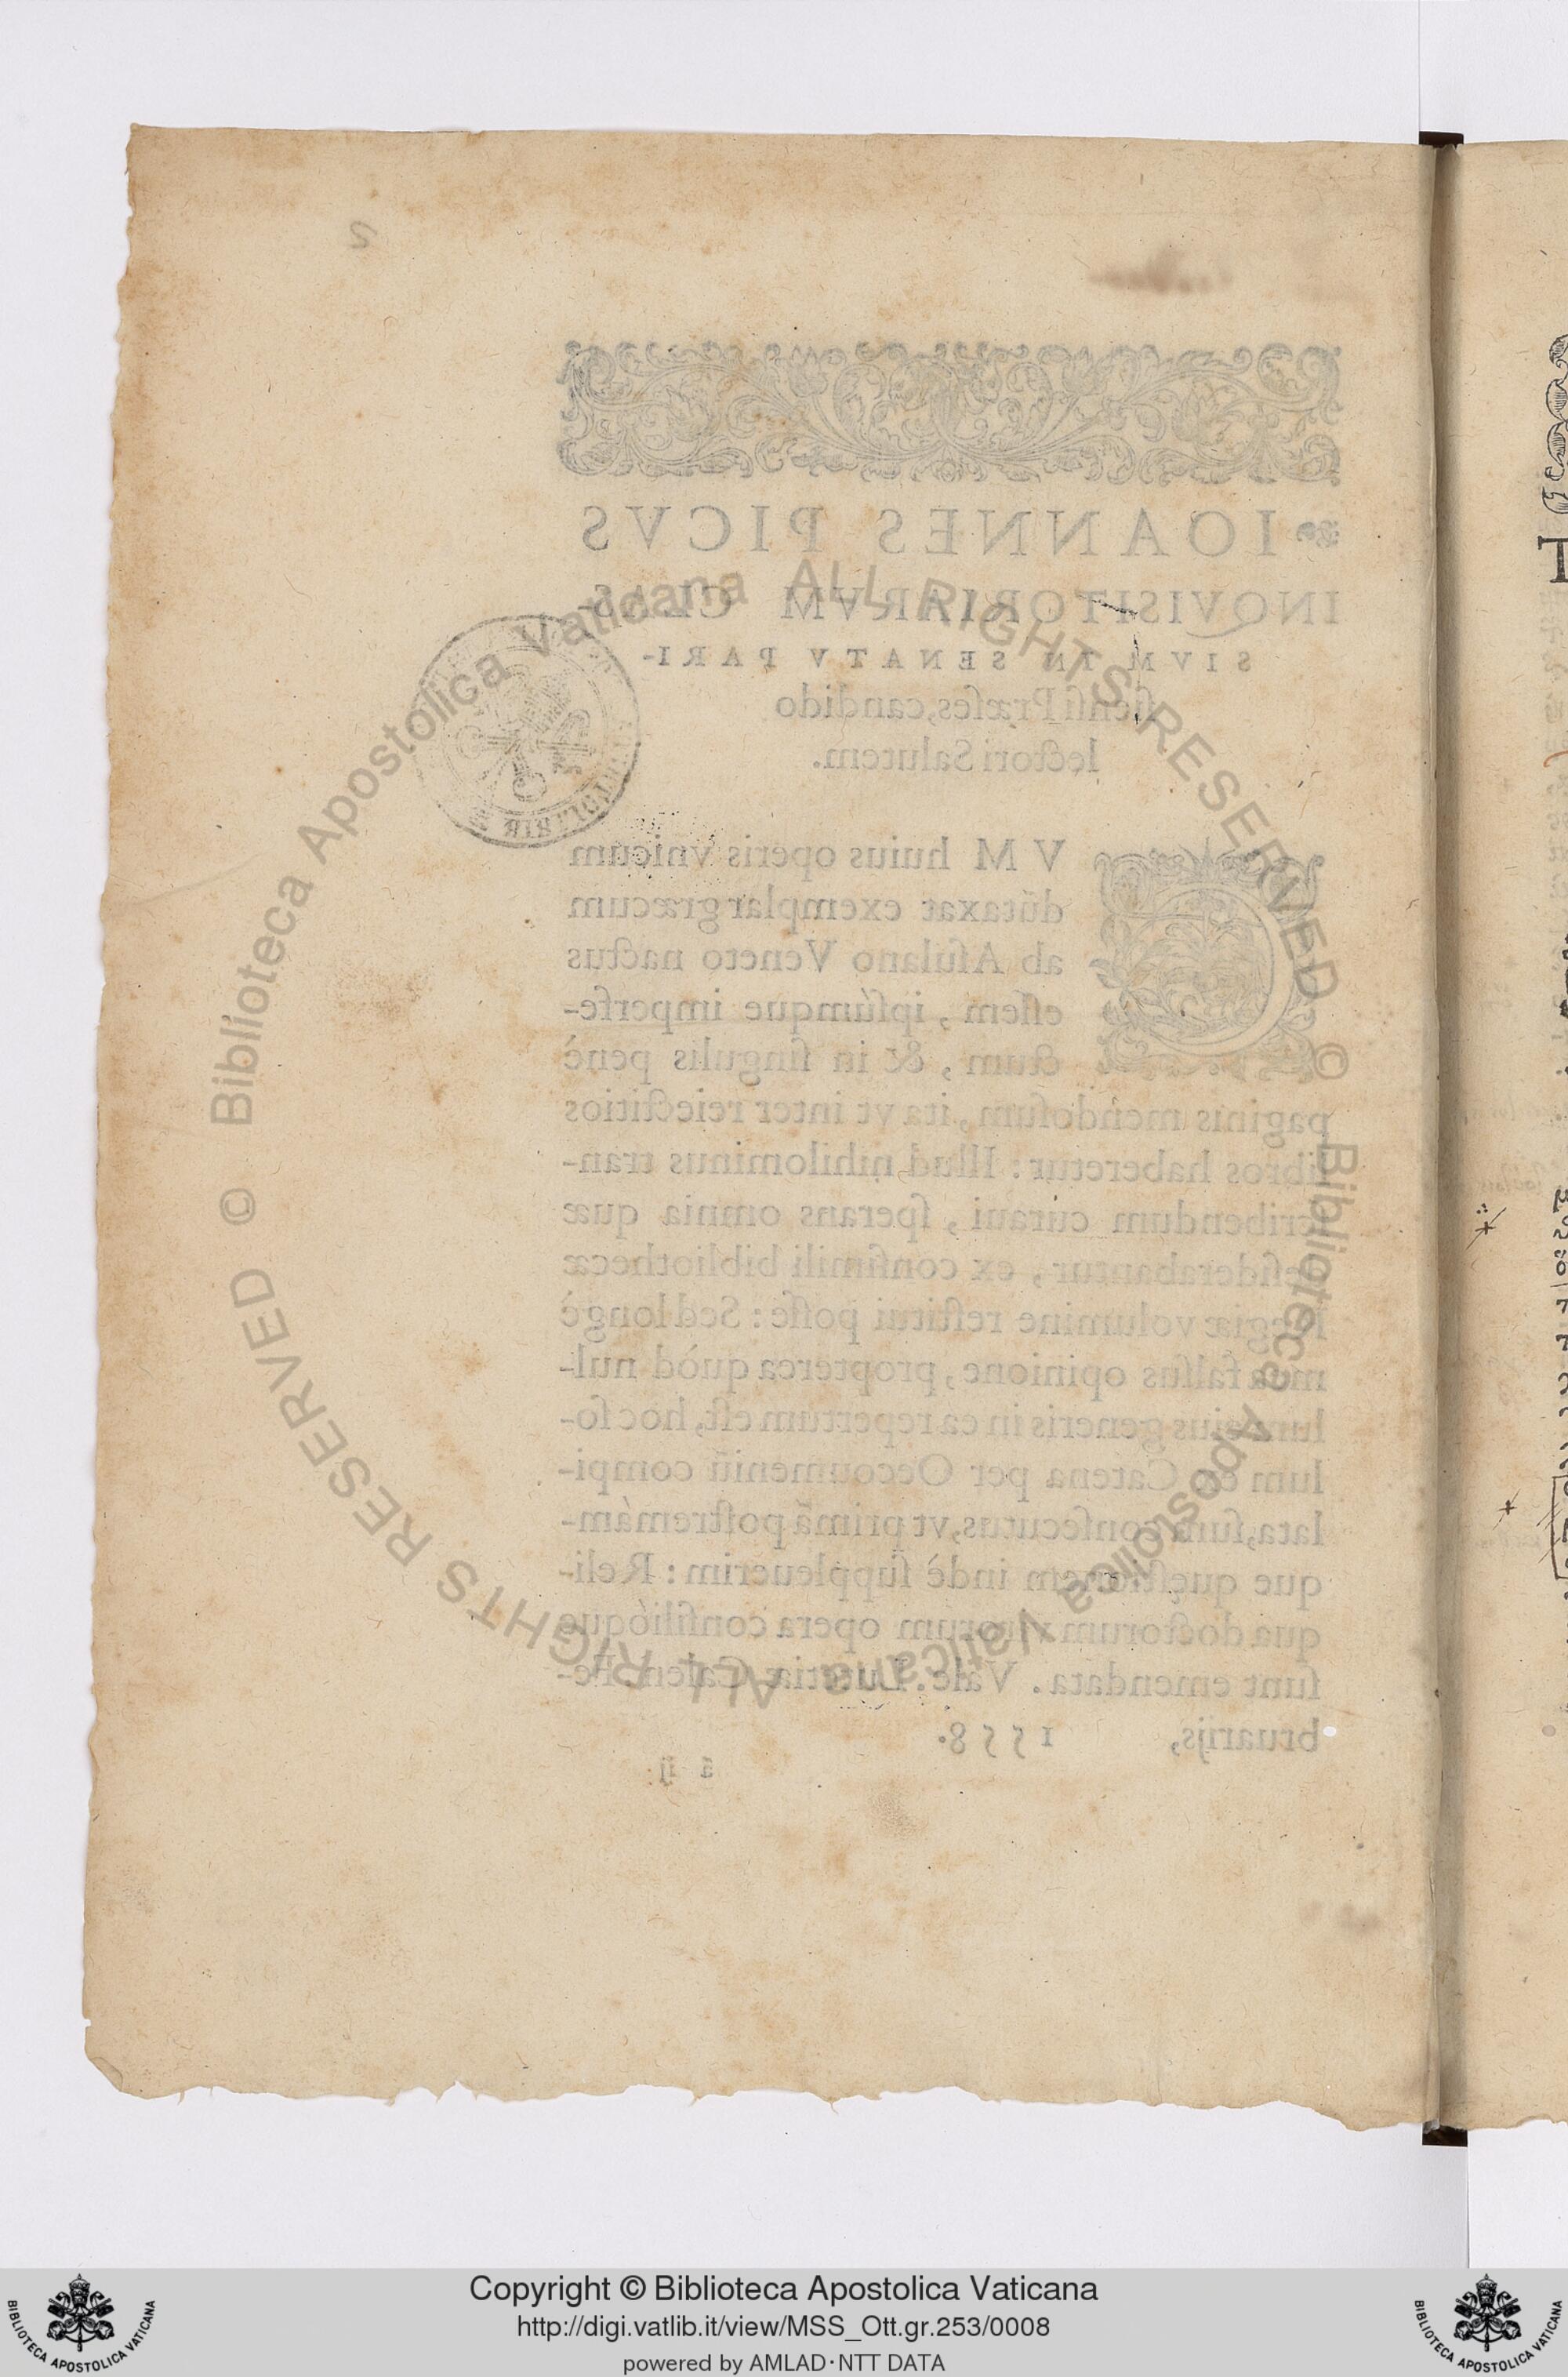 2
IOANNES PICVS
INQVISITORIARVM CLAS-
SIVM IN SENATV PARI-
siensi Præses, candido
lectori Salutem.
CVM huius operis vnicum
dūtaxat exemplar græcum
ab Asulano Veneto nactus
essem, ipsúmque imperfe-
ctum, & in singulis penè
paginis mendosum, ita vt inter reiectitios
libros haberetur: Illud nihilominus tran-
scribendum curaui, sperans omnia quæ
desiderabantur, ex consimili bibliothecæ
Regiæ volumine restitui posse: Sed longè
mea falsus opinione, propterea quòd nul-
lum eius generis in ea repertum est, hoc so-
lum ex Catena per Oecoumeniū compi-
lata, sum consecutus, vt primā postremám-
que quęstionem indè suppleuerim: Reli-
qua doctorum virorum opera consilióque
sunt emendata. Vale. Lutetiæ Calen. Fe-
bruarijs, 1558.
ā ij
© Biblioteca Apostolica Vaticana ALL RIGHTS RESERVED
© Biblioteca Apostolica Vaticana ALL RIGHTS RESERVED
Copyright © Biblioteca Apostolica Vaticana
http://digi.vatlib.it/view/MSS_Ott.gr.253/0008
powered by AMLAD·NTT DATA
BIBLIOTECA APOSTOLICA VATICANA
BIBLIOTECA APOSTOLICA VATICANA